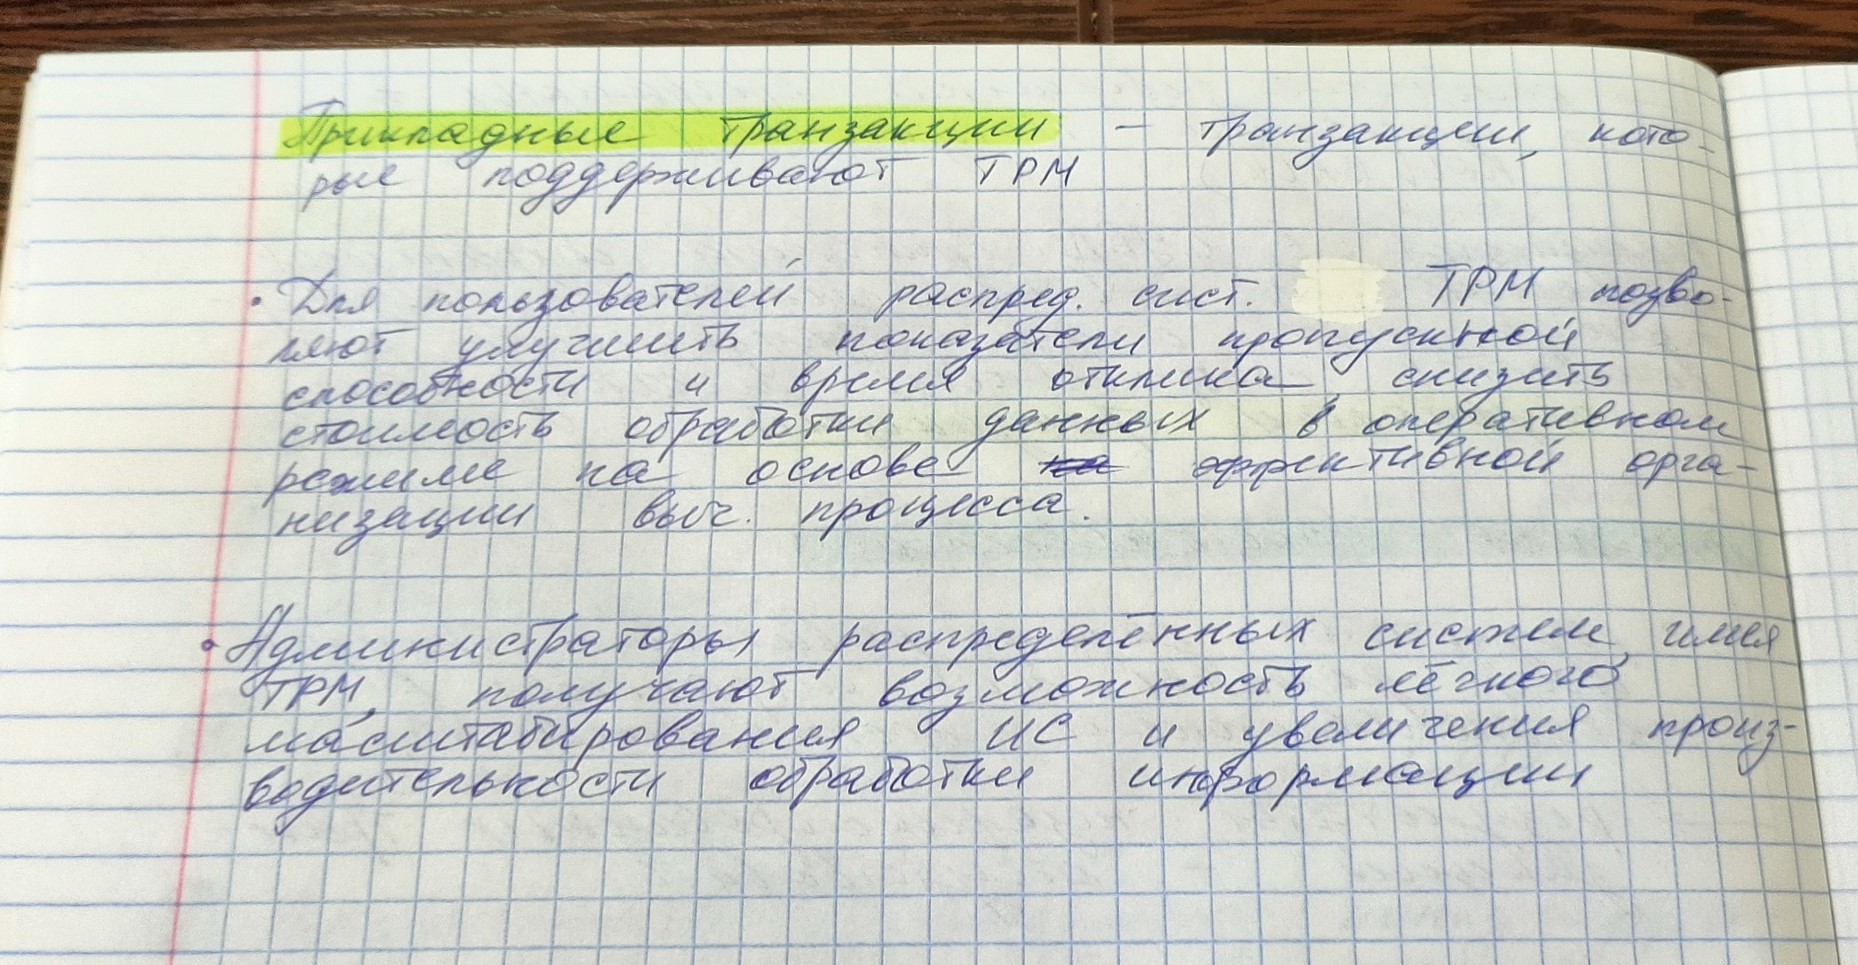 Прикладные транзакции – транзакции, кото-
рые поддерживают TPM
• Для пользователей распред. сист. TPM позво-
ляют улучшить показатели пропускной
способности и время отклика, снизить
стоимость обработки данных в оперативном
режиме на основе на эффективной орга-
низации выч. процесса.
• Администраторы распределённых систем, имея
TPM, получают возможность лёгкого
масштабирования ИС и увеличения произ-
водительности обработки информации